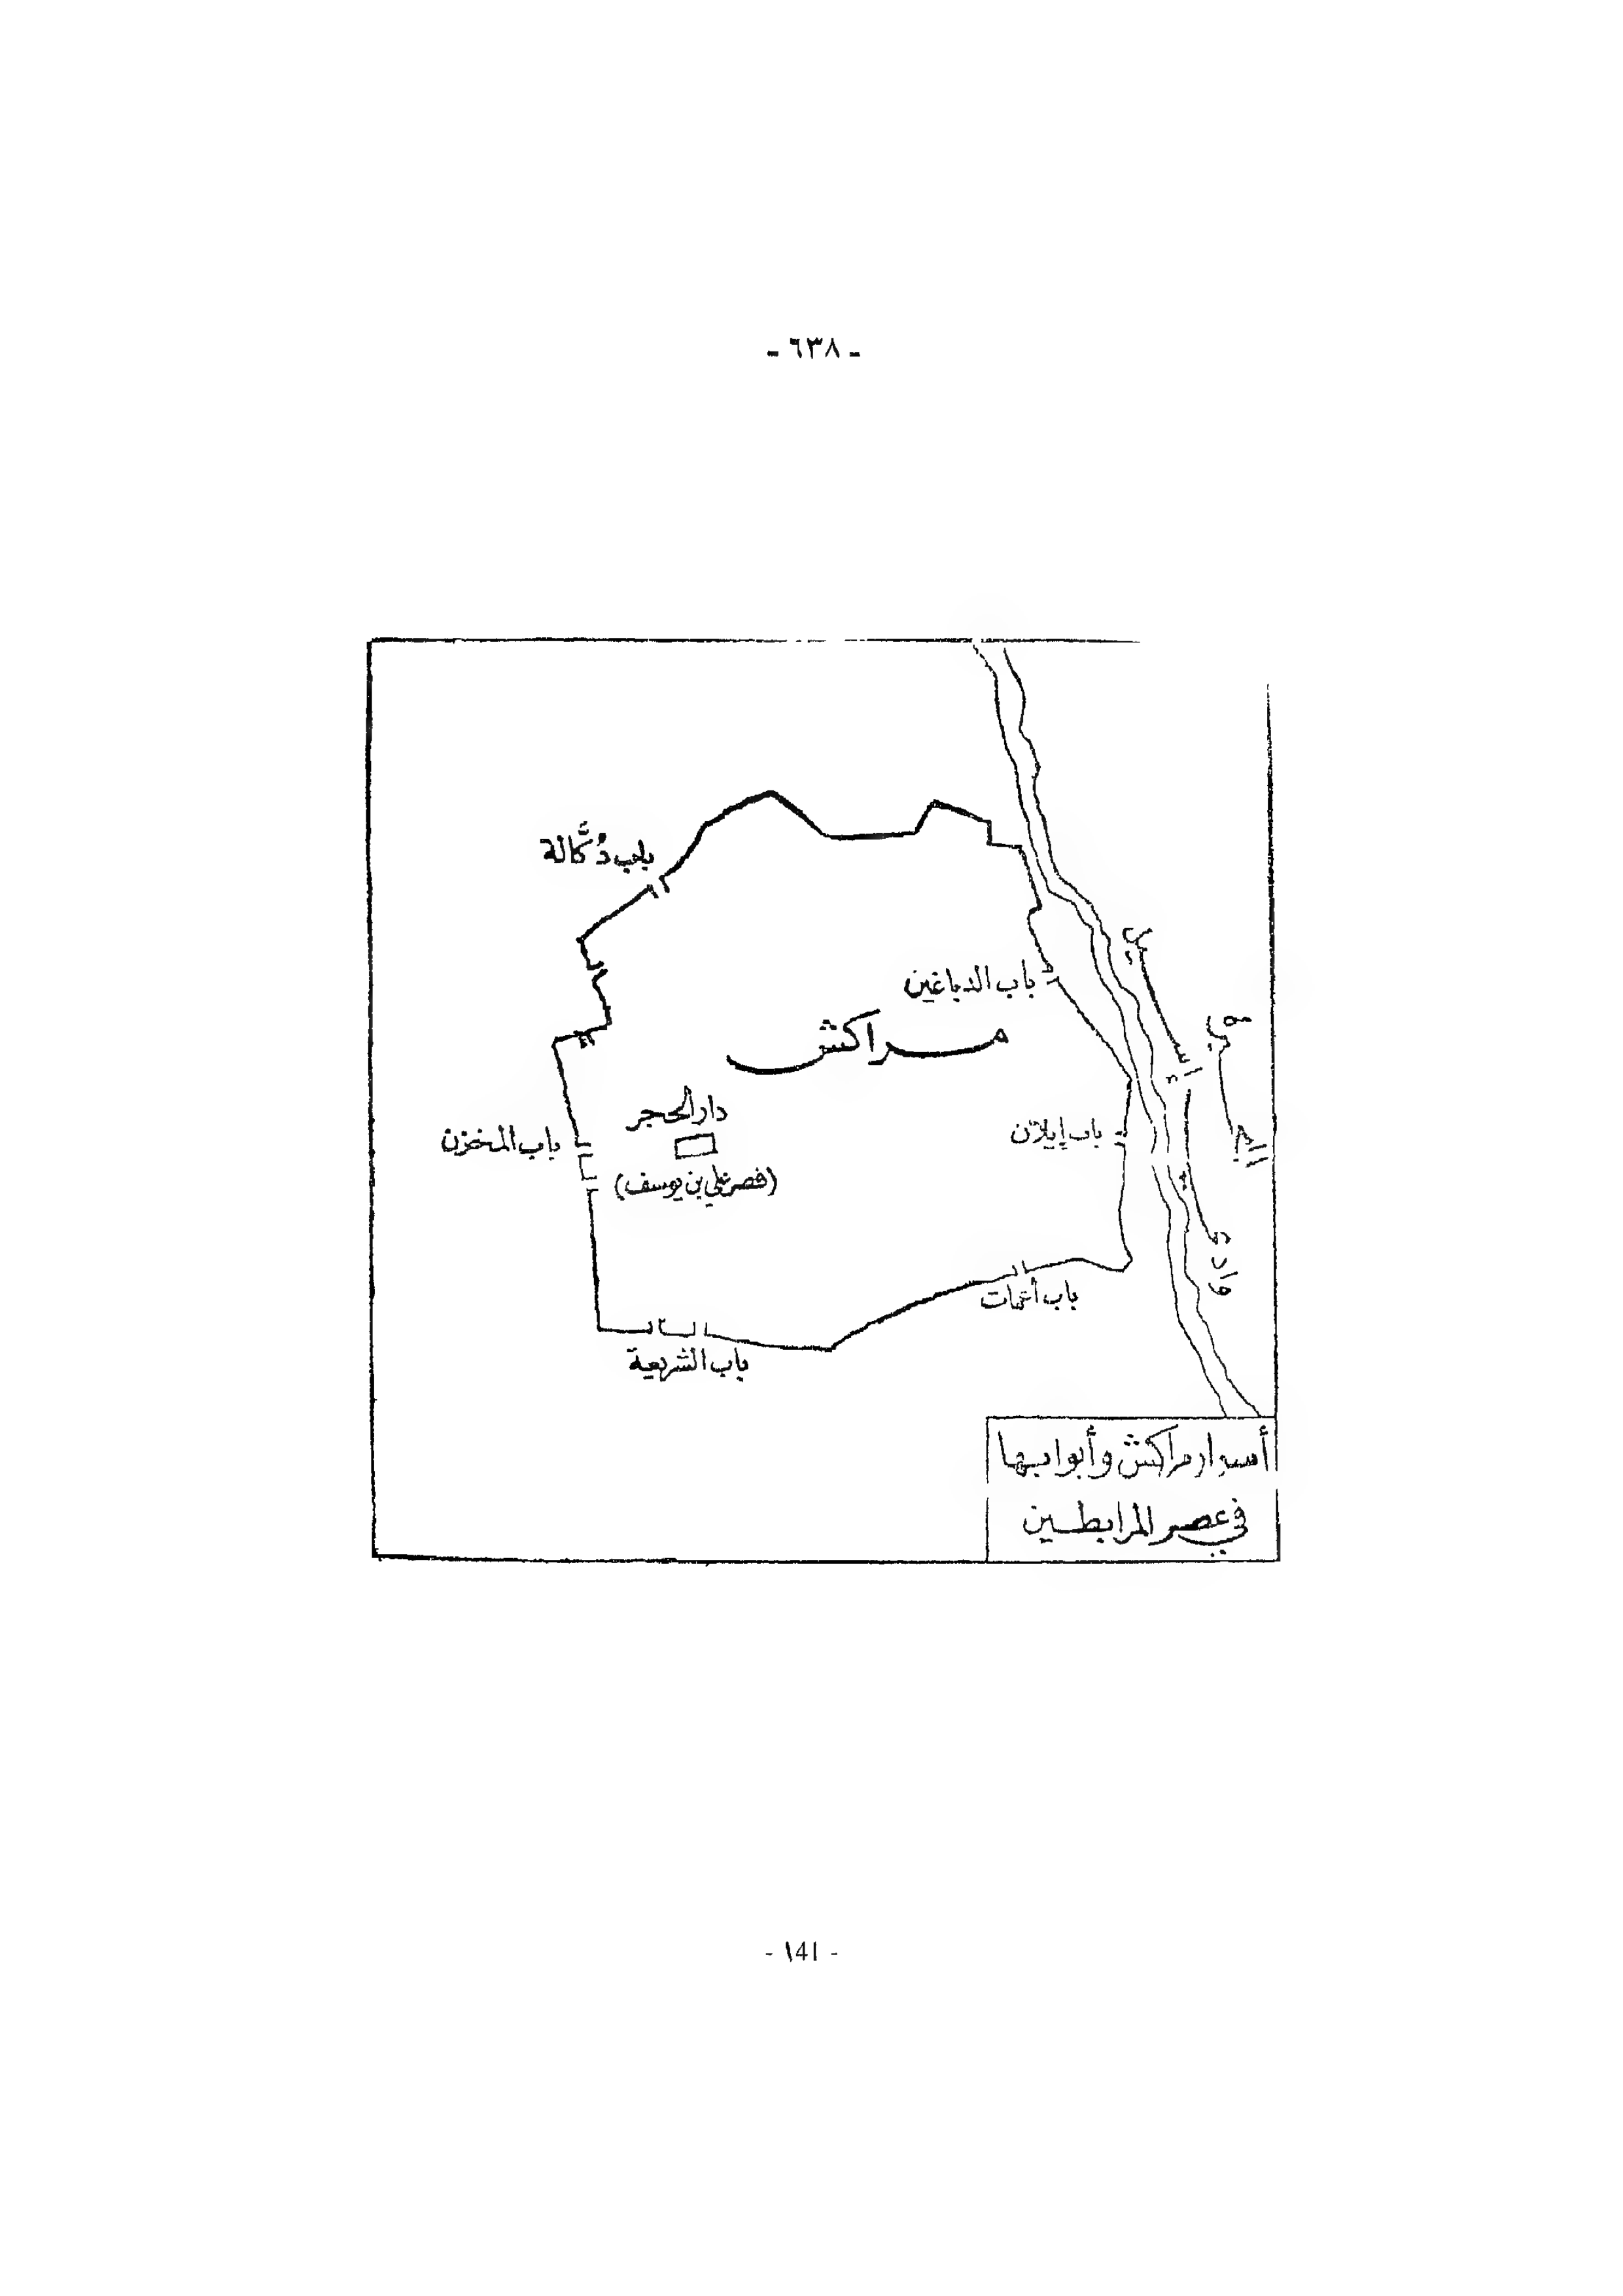 - ٦٣٨ -
باب دُكَّالة
باب الدباغين
مراكش
دار الحجر
باب إيلان
باب المخزن
(قصر علي بن يوسف)
باب أغمات
باب الشريعة
أسوار مراكش وأبوابها
في عصر المرابطين
- ١41 -